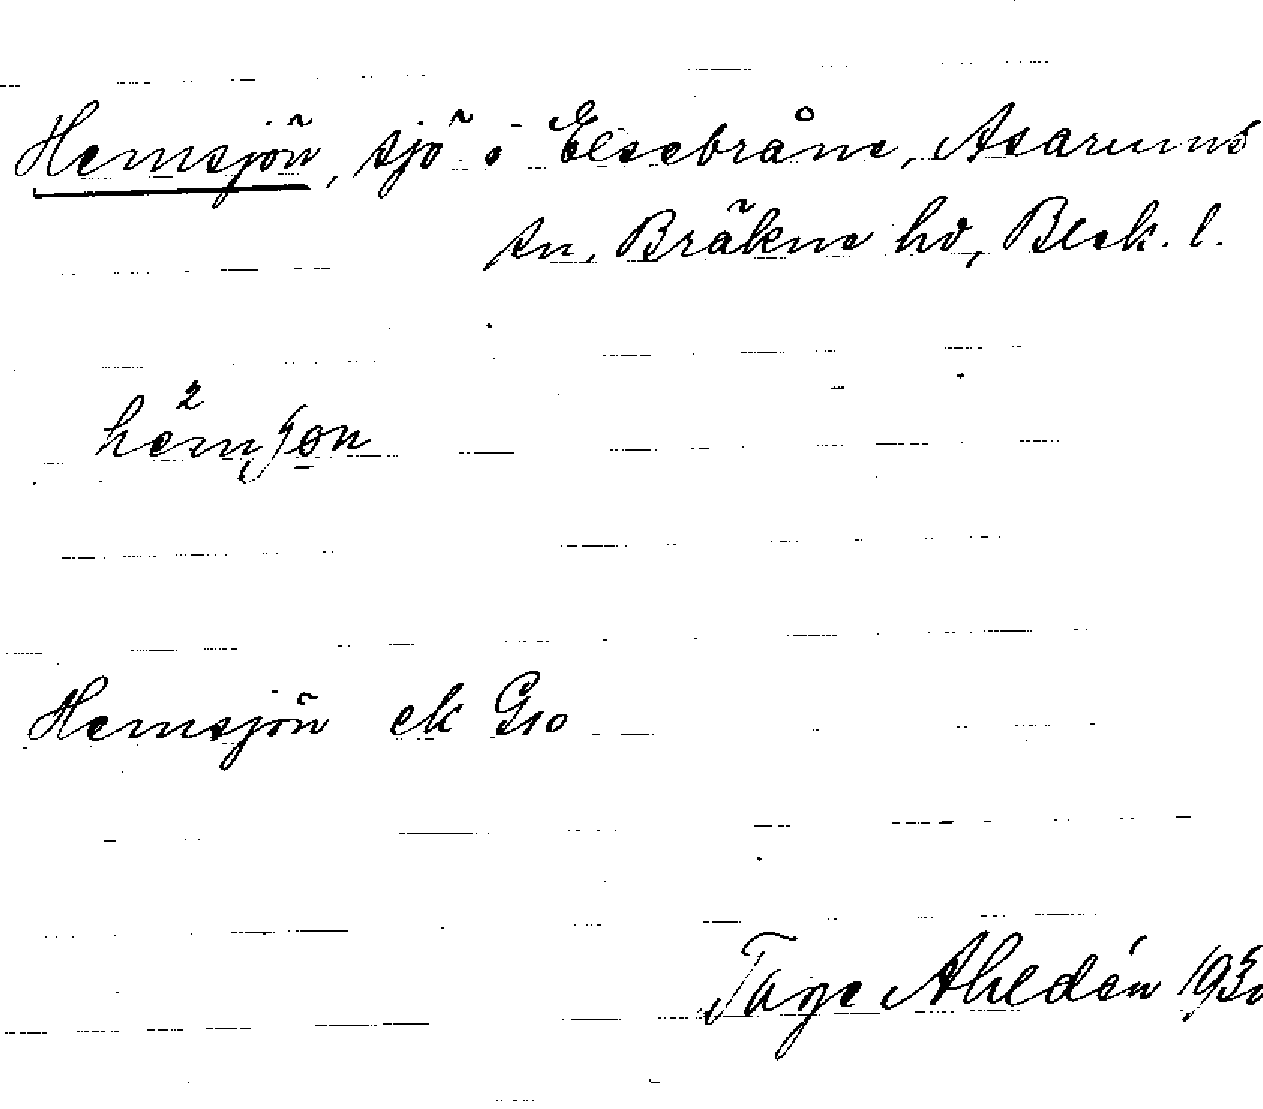 Hemsjön, sjö i Elsebråne, Asarums
sn, Bräkne hd, Blek. l.
Hemsjön ek G10
Tage Ahldén